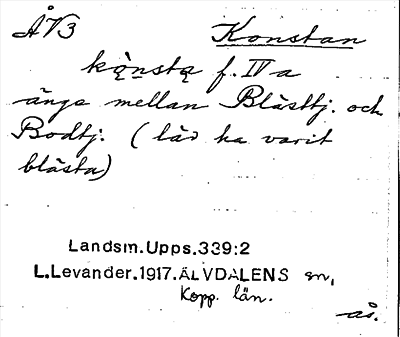 ÅV3 Konstan
kǫnstą f. IV a
ängs mellan Blästtj. och
Bodtj. (lär ha varit
blästa)
Landsm. Upps. 339:2
L. Levander. 1917. ÄLVDALENS sn,
Kopp. län.
ås.